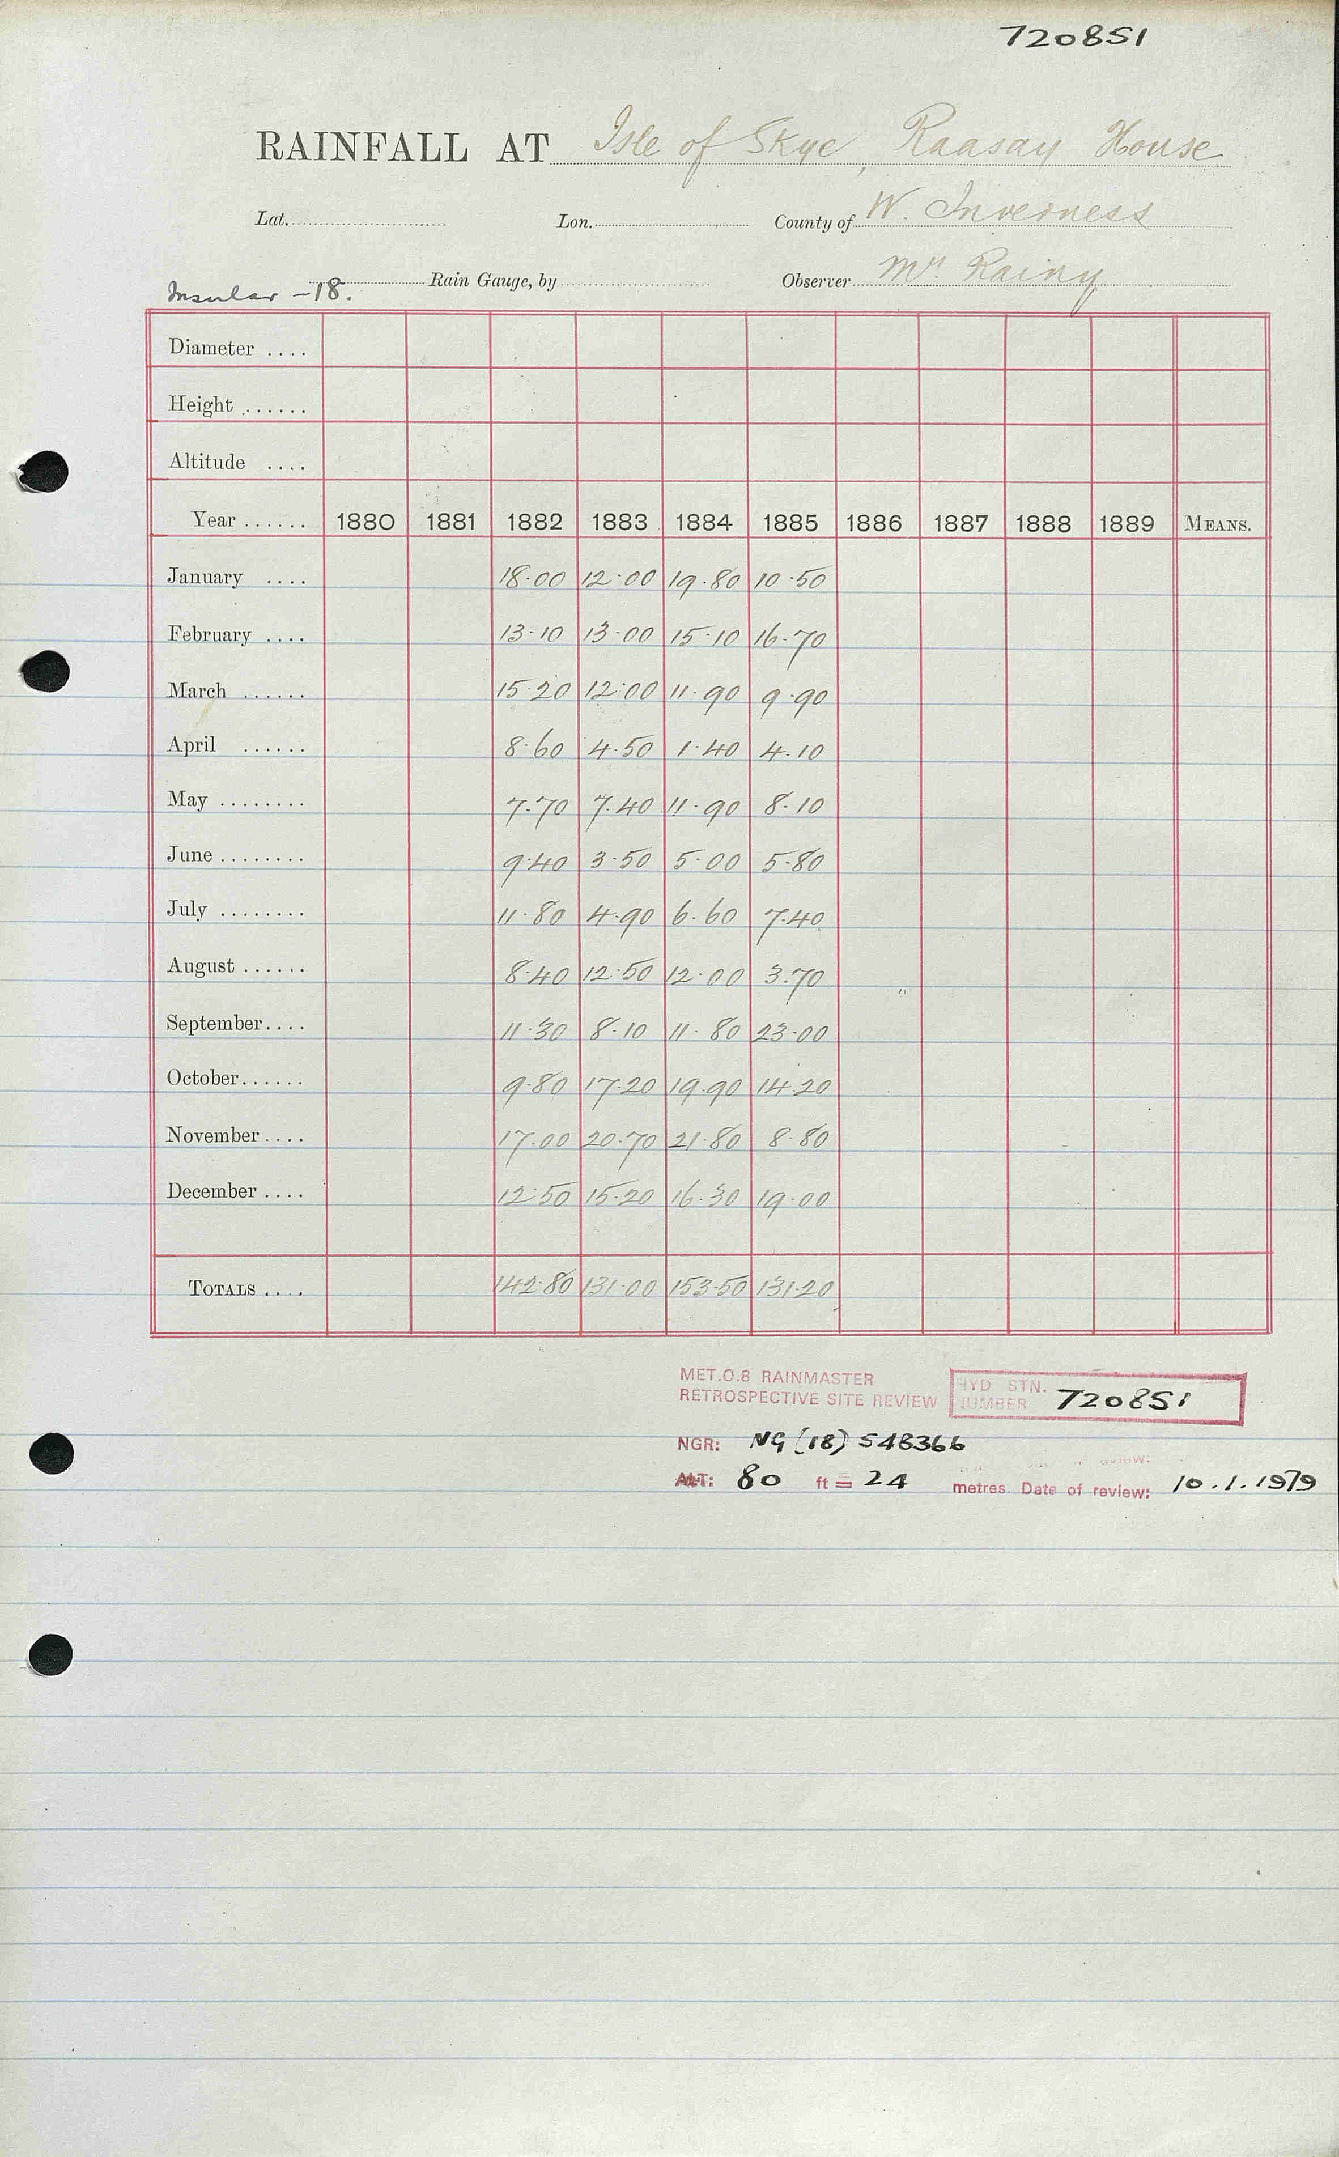 720851
RAINFALL AT Isle of Skye, Raasay House
Lat. Lon. County of W. Inverness
Insular - 18. Rain Gauge, by Observer Mr Rainy
Diameter ....
Height ......
Altitude ....
Year ...... 1880 1881 1882 1883 1884 1885 1886 1887 1888 1889 MEANS.
January .... 18.00 12.00 19.80 10.50
February .... 13.10 13.00 15.10 16.70
March ...... 15.20 12.00 11.90 9.90
April ...... 8.60 4.50 1.40 4.10
May ........ 7.70 7.40 11.90 8.10
June ........ 9.40 3.50 5.00 5.80
July ........ 11.80 4.90 6.60 7.40
August ...... 8.40 12.50 12.00 3.70
September.... 11.30 8.10 11.80 23.00
October...... 9.80 17.20 19.90 14.20
November.... 17.00 20.70 21.80 8.80
December .... 12.50 15.20 16.30 19.00
TOTALS .... 142.80 131.00 153.50 131.20
MET.O.8 RAINMASTER
RETROSPECTIVE SITE REVIEW
HYD STN.
NUMBER 720851
NGR: NG (18) 548366
ALT: 80 ft = 24 metres. Date of review: 10.1.1979